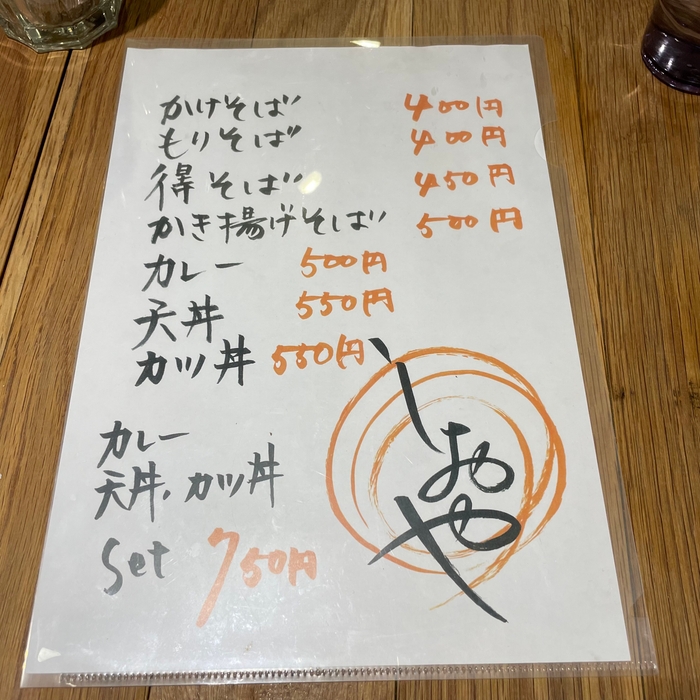 かけそば 400円
もりそば 400円
得そば 450円
かき揚げそば 500円
カレー 500円
天丼 550円
カツ丼 550円
カレー
天丼、カツ丼
Set 750円
しおや